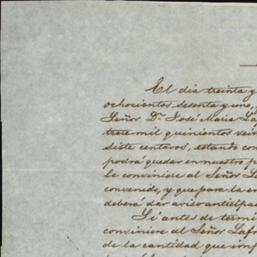 El dia treinta y
ochocientos sesenta y uno,
Señor Dn. José Maria La
trece mil quinientos vei
siete centavos, estando con
podrá quedar en nuestro p
le conviniere al Señor La
convenido, y que para la en
deberá dar aviso anticipa
Si antes de termi
conviniere al Señor Lafr
de la cantidad que imp